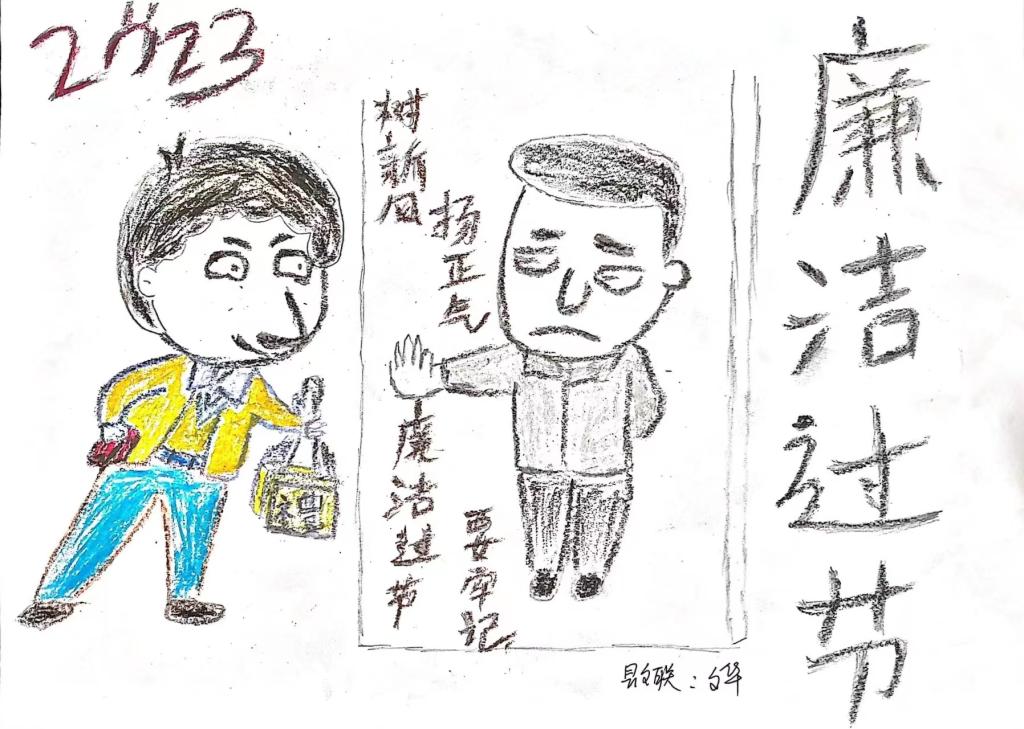 2023
廉洁过节
树新风
扬正气
廉洁过节
要牢记
禮
县文联：